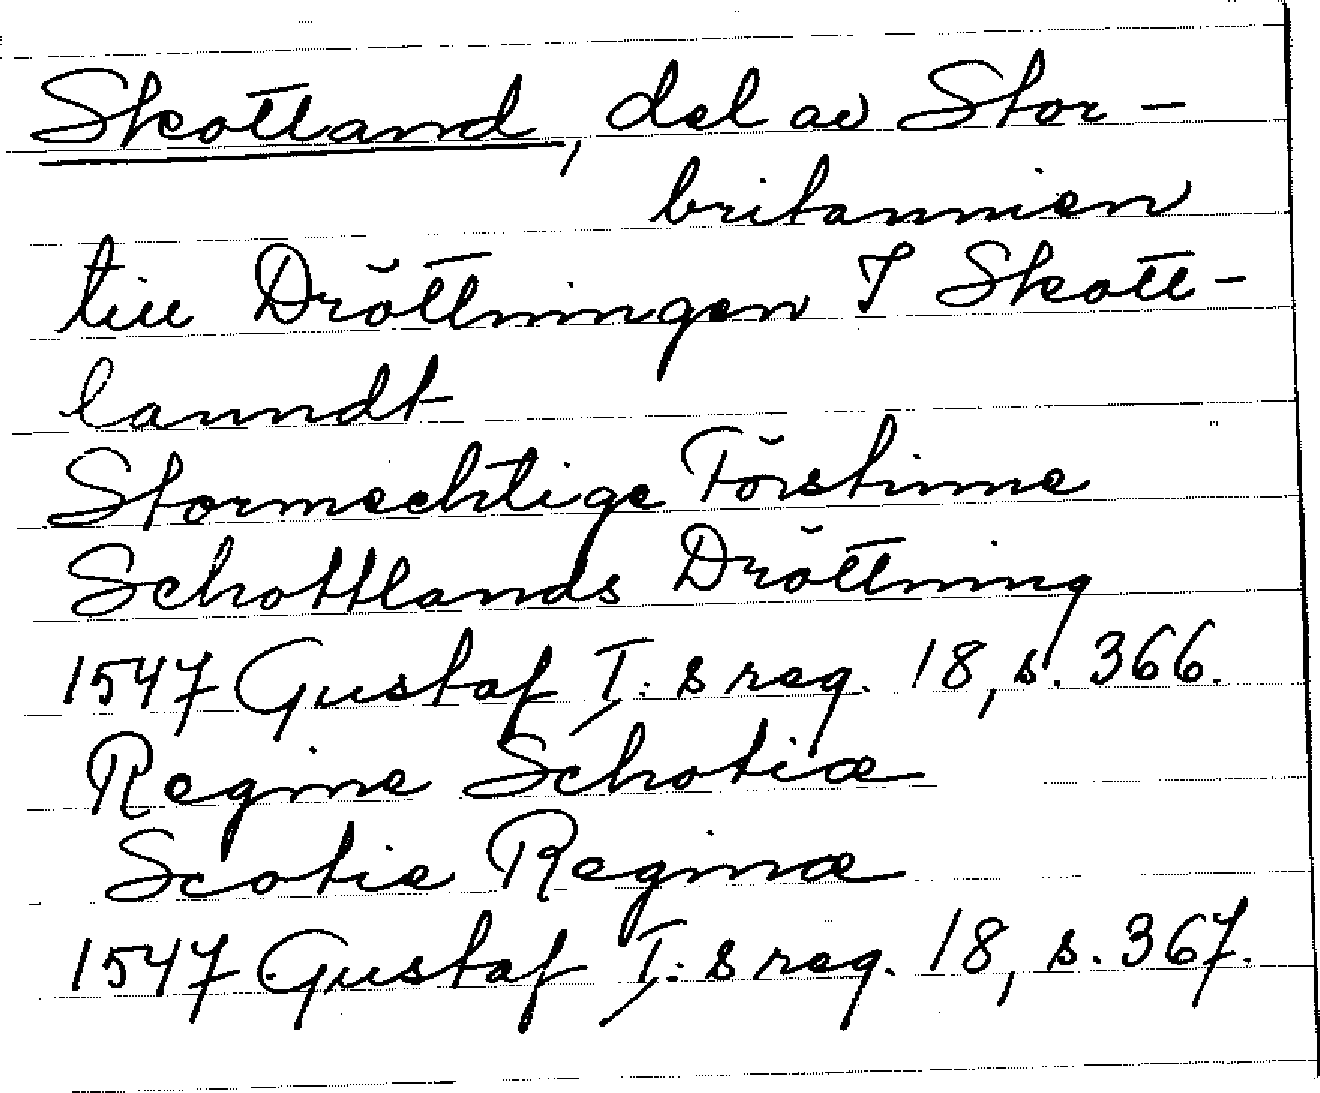 Skottland, del av Stor-
britannien
till Dröttningen I Skott-
lanndt
Stormechtige Förstinne
Schottlands Dröttning
1547 Gustaf I:s reg. 18, s. 366.
Regine Schotiæ
Scotie Reginæ
1547 Gustaf I:s reg. 18, s. 367.